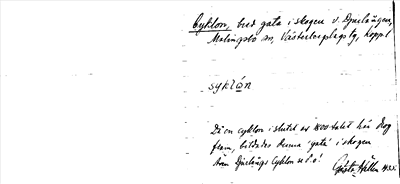 Cyklon, bred gata i skogen v. Djuplången,
Malingsbo sn, Västerbergslags tg, Koppl
syklån
Då en cyklon i slutet av 1800-talet här drog
fram, bildades denna "gata" i skogen
Även Djuplångs Cyklon s.t.o!
Gösta Hallen 1935.